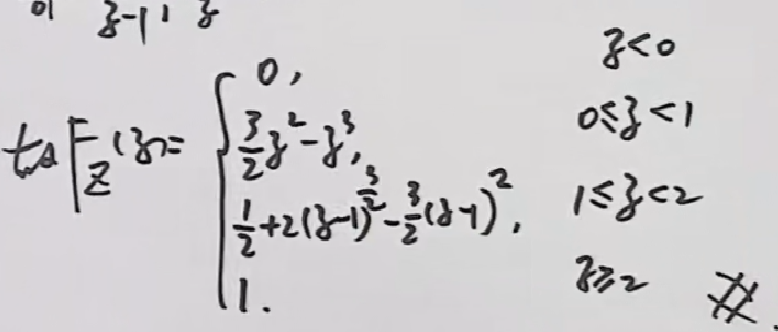 z-1 1 z
故F_Z(z)= { 0, z<0
3/2 z^2 - z^3, 0≤z<1
1/2 + 2(z-1)^{3/2} - 3/2 (z-1)^2, 1≤z<2
1. z≥2 #